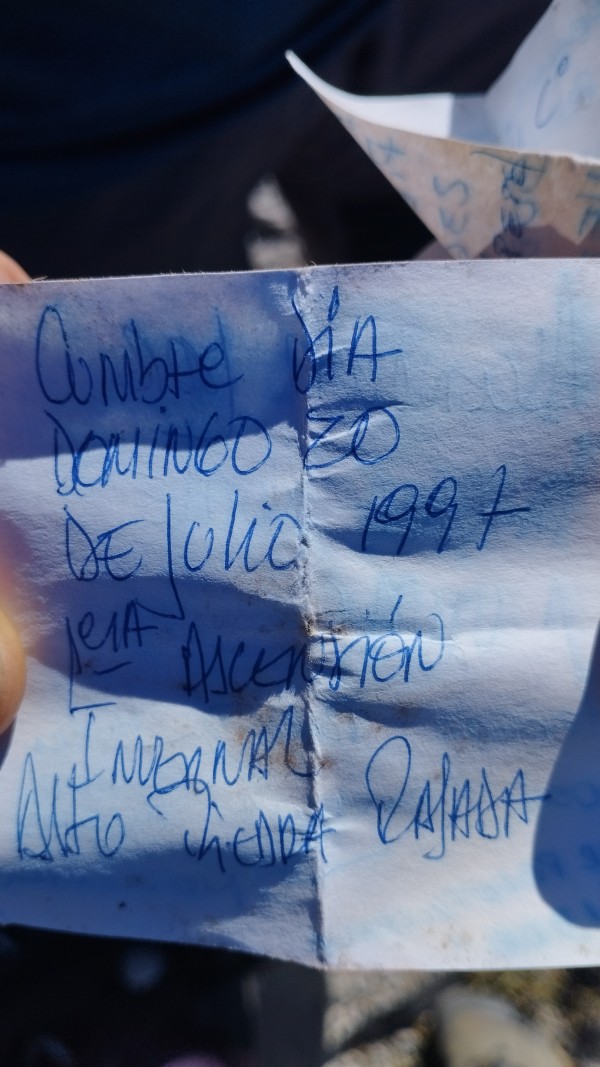 C°
DES
Cumbre DiA
DOMINGO 20
DE Julio 1997
1era ASCENSIÓN
INVERNAL
Alto PiEDRA RAJADA